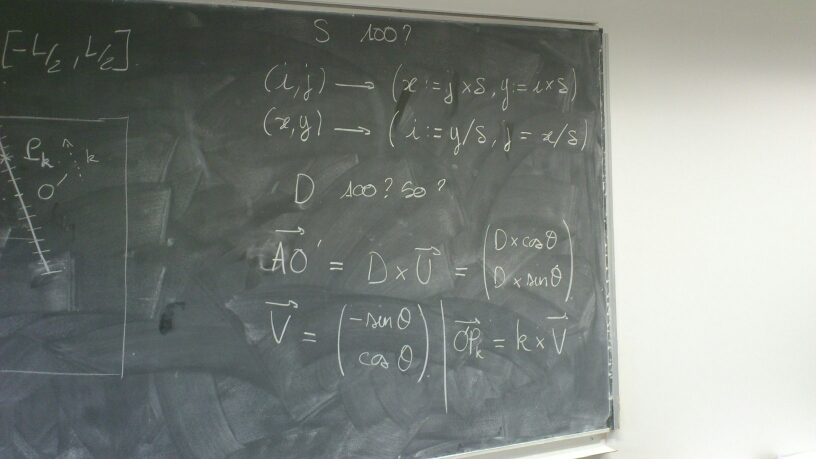 [-L/2, L/2].
S 100?
(i,j) → (x:=j×S, y:=i×S)
(x,y) → (i:=y/S, j=x/S)
P_k
k
O'
D 100? 50?
AO' = D×U = (D×cosθ
D×sinθ)
V = (-sinθ
cosθ) | O'P_k = k×V